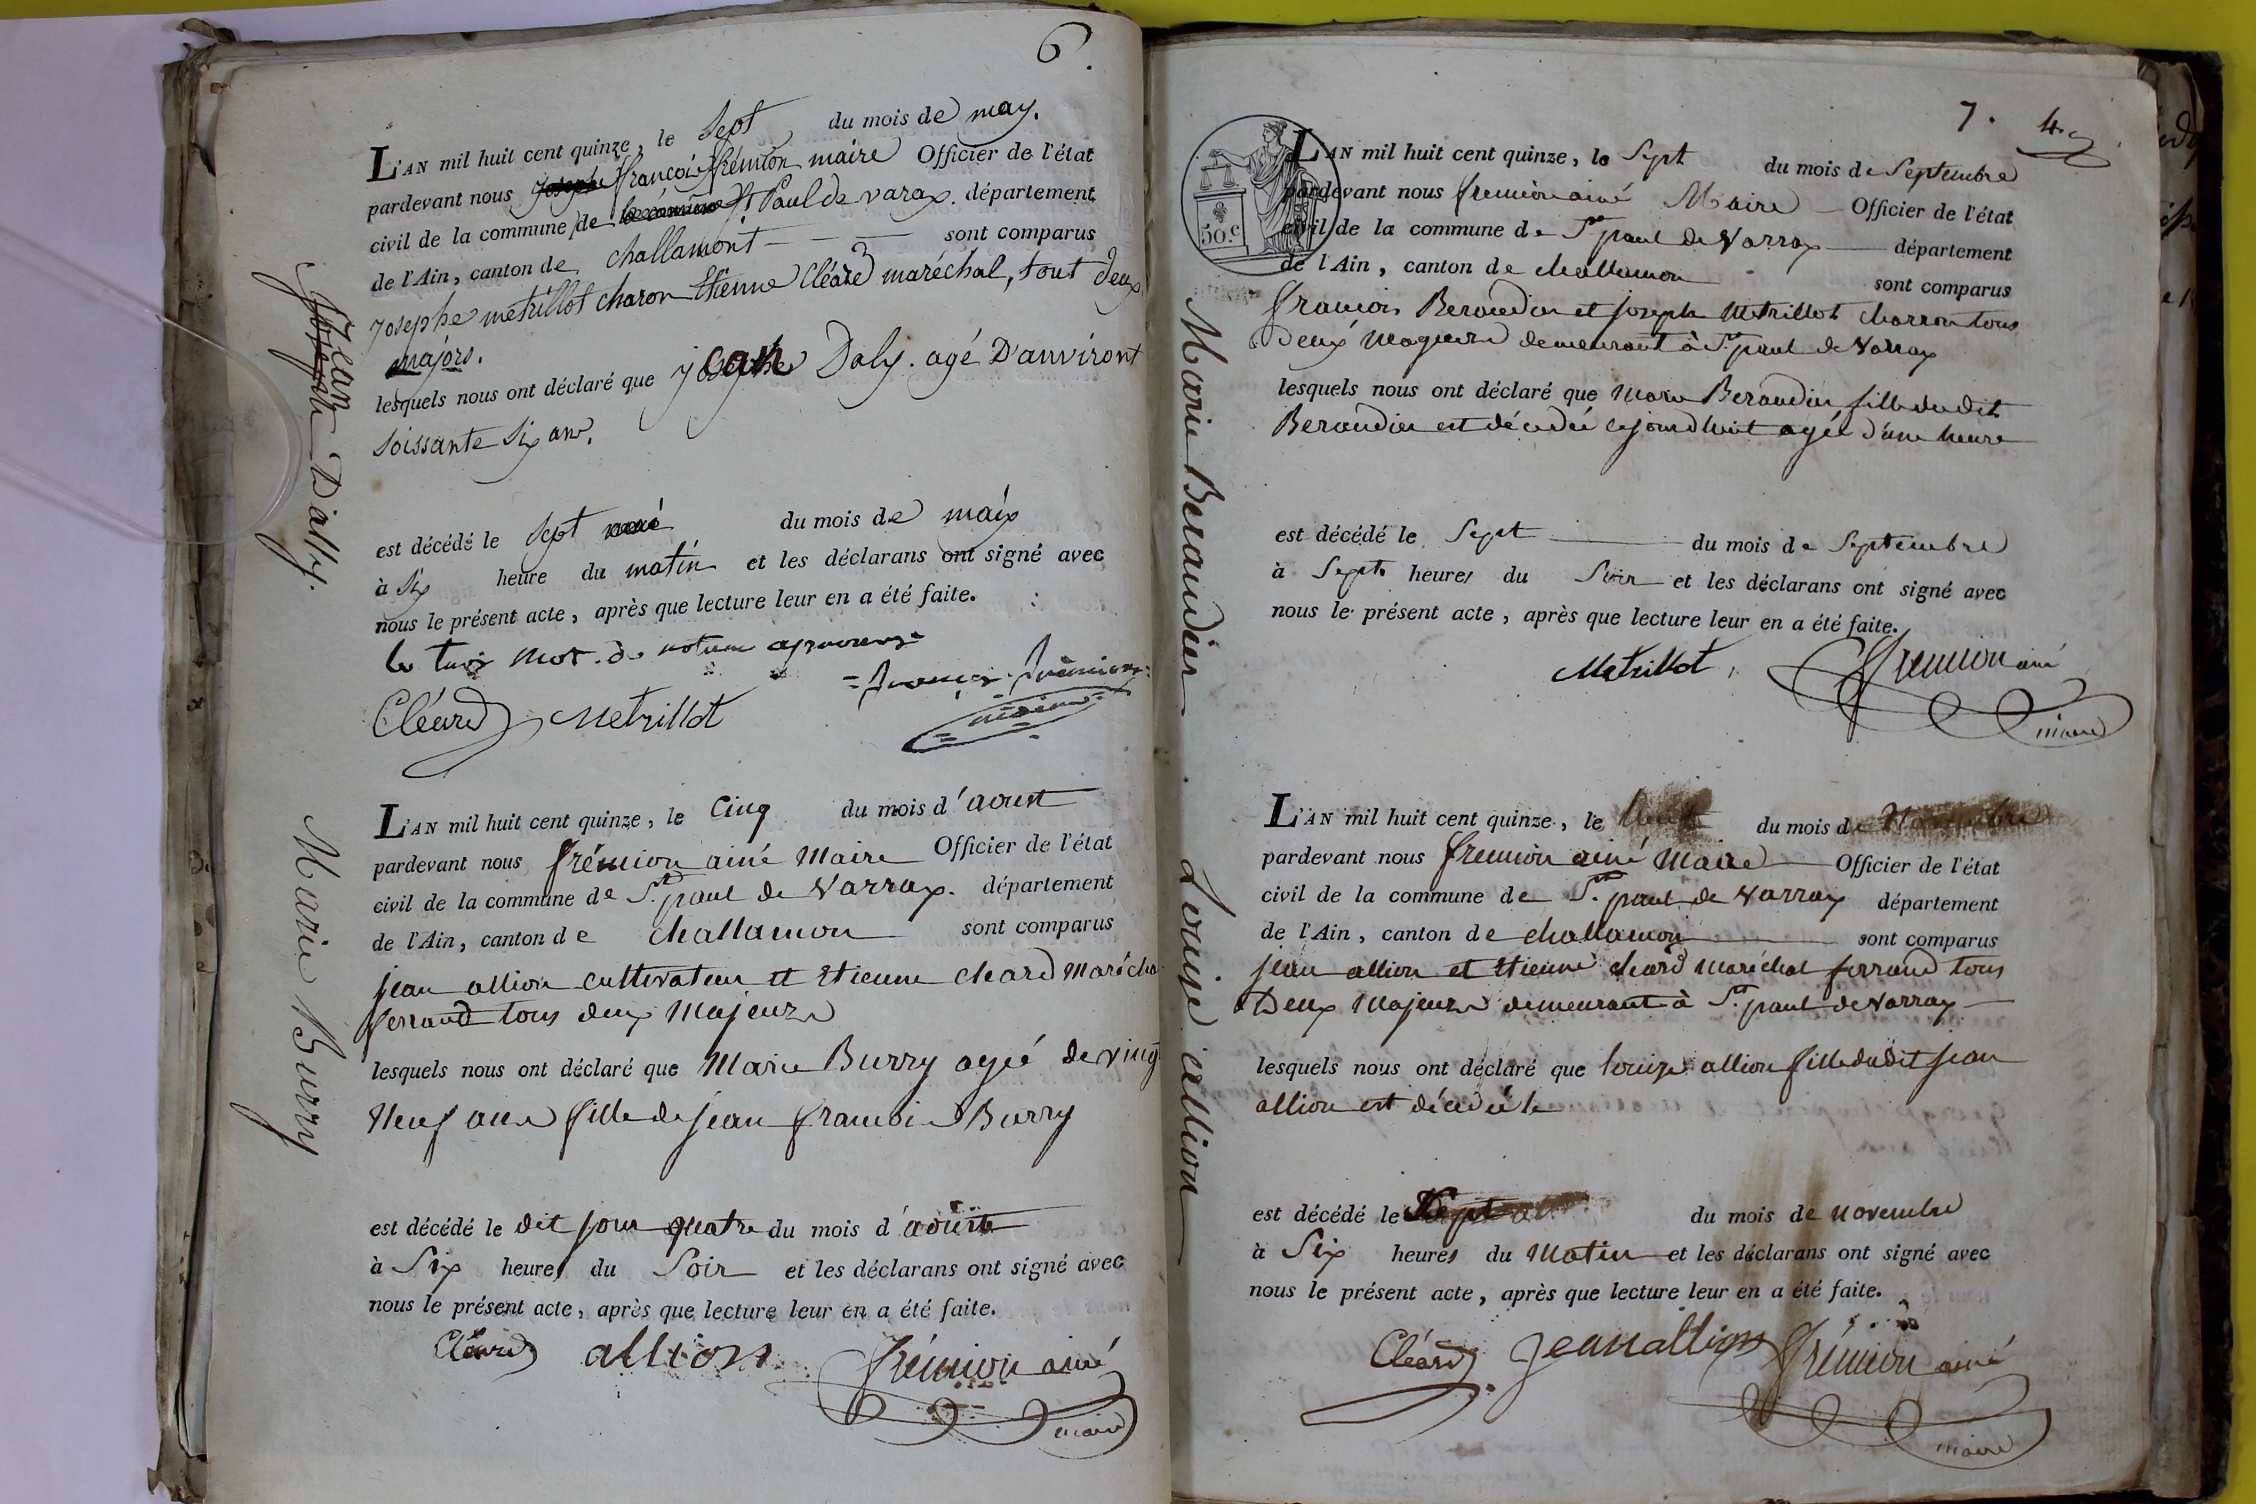 6.
L'AN mil huit cent quinze, le sept du mois de may.
pardevant nous françois frémion maire Officier de l'état
civil de la commune de St Paul de varax. département
de l'Ain, canton de challamont sont comparus
josephe metrillot charon Etienne Cléard maréchal, tout deux
majors.
lesquels nous ont déclaré que jean Daly. agé D'anviront
soissante six ans.
est décédé le sept du mois de maix
à six heure du matin et les déclarans ont signé avec
nous le présent acte, après que lecture leur en a été faite.
Cléard Metrillot
Jean Dally.
L'AN mil huit cent quinze, le cinq du mois d'aoust
pardevant nous frémion ainé Maire Officier de l'état
civil de la commune de St. paul de Varrax. département
de l'Ain, canton de challamon sont comparus
jean allion cultivateur et Etienne cleard Maréchal
ferrand tous deux Majeurs
lesquels nous ont déclaré que Marie Burry agée de vingt
Neuf ans fille de jean francois Burry
est décédé le dit jour quatre du mois d'aoust
à Six heures du Soir et les déclarans ont signé avec
nous le présent acte, après que lecture leur en a été faite.
Cléard allion frémion ainé
maire
Marie Burry
7. 4
50.c
L'AN mil huit cent quinze, le Sept du mois de Septembre
pardevant nous fremion ainé Maire Officier de l'état
civil de la commune de St paul de Varrax département
de l'Ain, canton de challamon sont comparus
francois Beraudier et joseph Metrillot charron tous
Deux Mageurs demeurant à St. paul de Varrax
lesquels nous ont déclaré que Marie Beraudier fille du dit
Beraudier est décédée cejourdhuit agée d'une heure
est décédé le Sept du mois de Septembre
à Sept heures du Soir et les déclarans ont signé avec
nous le présent acte, après que lecture leur en a été faite.
Metrillot, fremion ainé
maire
Marie Beraudier
L'AN mil huit cent quinze, le huit du mois de Novembre
pardevant nous fremion ainé Maire Officier de l'état
civil de la commune de St. paul de Varrax département
de l'Ain, canton de challamon sont comparus
jean allion et Etienne cleard Maréchal ferrand tous
Deux Majeurs demeurant à St. paul de Varrax
lesquels nous ont déclaré que louize allion fille du dit jean
allion est décédée le
est décédé le Sept du mois de novembre
à Six heures du Matin et les déclarans ont signé avec
nous le présent acte, après que lecture leur en a été faite.
Cléard Jean allion frémion ainé
maire
Louise allion